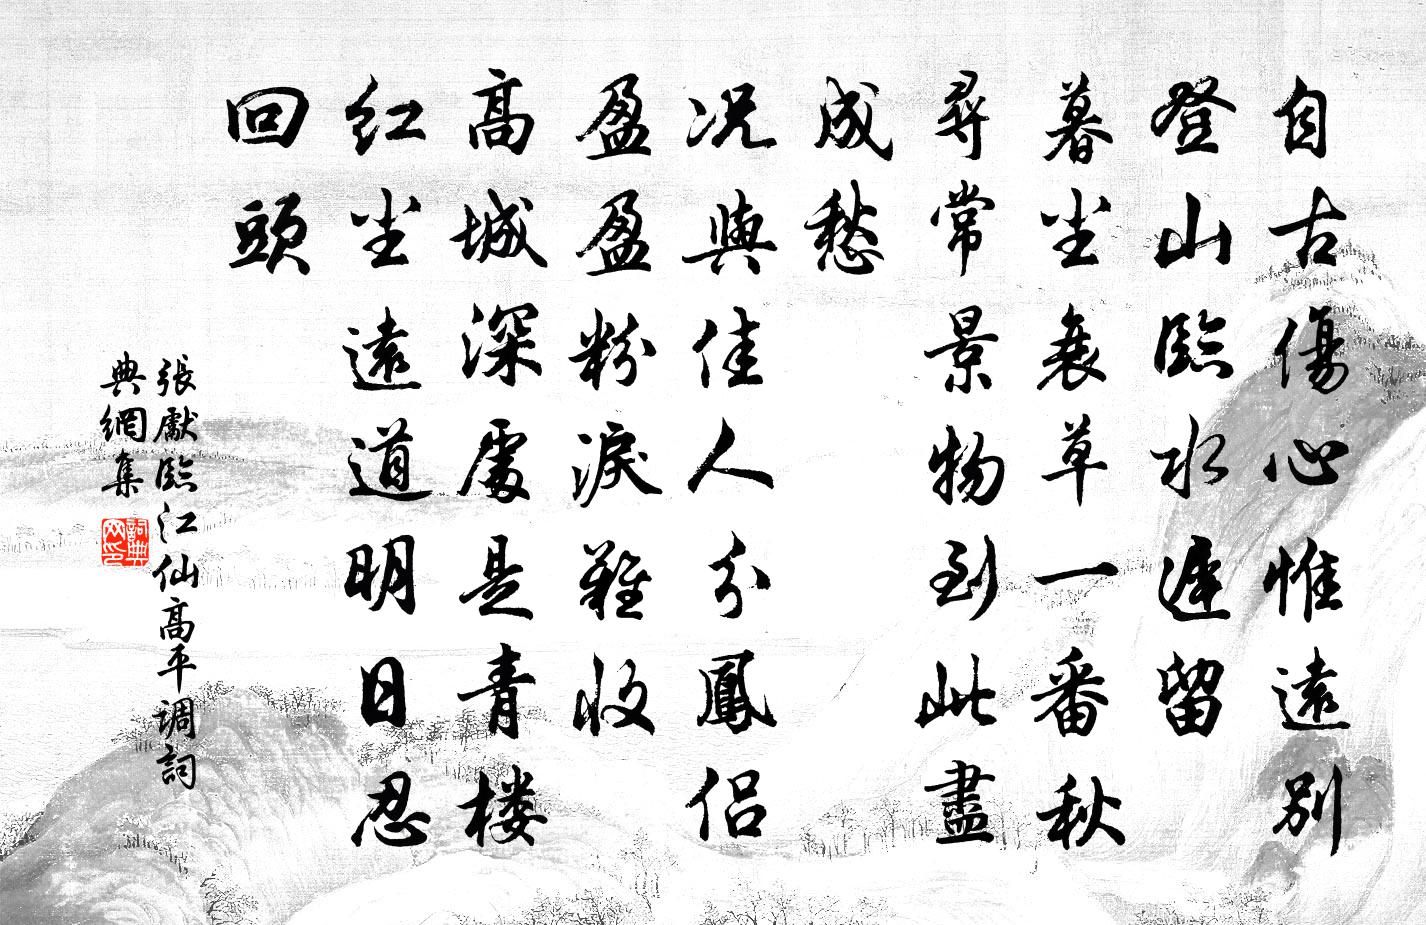 自古傷心惟遠別
登山臨水遲留
暮尘衰草一番秋
尋常景物到此盡
成愁
况與佳人分鳳侣
盈盈粉淚難收
高城深處是青楼
红尘遠道明日忍
回頭
張獻臨江仙高平调詞
典網集
詞典
网印